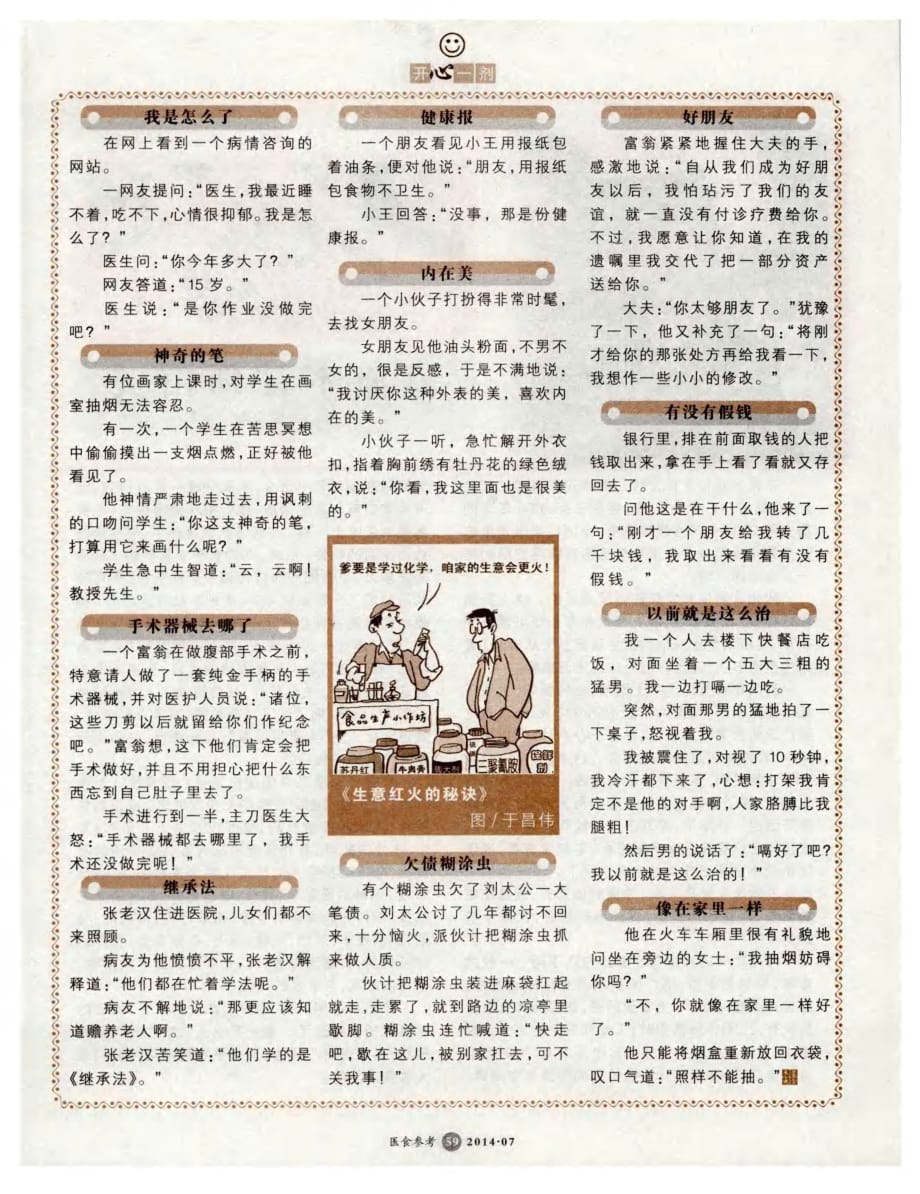 开心一剂
我是怎么了
在网上看到一个病情咨询的
网站。
一网友提问:“医生,我最近睡
不着,吃不下,心情很抑郁。我是怎
么了?”
医生问:“你今年多大了?”
网友答道:“15 岁。”
医生说:“是你作业没做完
吧?”
神奇的笔
有位画家上课时,对学生在画
室抽烟无法容忍。
有一次,一个学生在苦思冥想
中偷偷摸出一支烟点燃,正好被他
看见了。
他神情严肃地走过去,用讽刺
的口吻问学生:“你这支神奇的笔,
打算用它来画什么呢?”
学生急中生智道:“云,云啊!
教授先生。”
手术器械去哪了
一个富翁在做腹部手术之前,
特意请人做了一套纯金手柄的手
术器械,并对医护人员说:“诸位,
这些刀剪以后就留给你们作纪念
吧。”富翁想,这下他们肯定会把
手术做好,并且不用担心把什么东
西忘到自己肚子里去了。
手术进行到一半,主刀医生大
怒:“手术器械都去哪里了,我手
术还没做完呢!”
继承法
张老汉住进医院,儿女们都不
来照顾。
病友为他愤愤不平,张老汉解
释道:“他们都在忙着学法呢。”
病友不解地说:“那更应该知
道赡养老人啊。”
张老汉苦笑道:“他们学的是
《继承法》。”
健康报
一个朋友看见小王用报纸包
着油条,便对他说:“朋友,用报纸
包食物不卫生。”
小王回答:“没事,那是份健
康报。”
内在美
一个小伙子打扮得非常时髦,
去找女朋友。
女朋友见他油头粉面,不男不
女的,很是反感,于是不满地说:
“我讨厌你这种外表的美,喜欢内
在的美。”
小伙子一听,急忙解开外衣
扣,指着胸前绣有牡丹花的绿色绒
衣,说:“你看,我这里面也是很美
的。”
爹要是学过化学,咱家的生意会更火!
食品生产小作坊
苏丹红
牛肉膏
三聚氰胺
《生意红火的秘诀》
图/于昌伟
欠债糊涂虫
有个糊涂虫欠了刘太公一大
笔债。刘太公讨了几年都讨不回
来,十分恼火,派伙计把糊涂虫抓
来做人质。
伙计把糊涂虫装进麻袋扛起
就走,走累了,就到路边的凉亭里
歇脚。糊涂虫连忙喊道:“快走
吧,歇在这儿,被别家扛去,可不
关我事!”
好朋友
富翁紧紧地握住大夫的手,
感激地说:“自从我们成为好朋
友以后,我怕玷污了我们的友
谊,就一直没有付诊疗费给你。
不过,我愿意让你知道,在我的
遗嘱里我交代了把一部分资产
送给你。”
大夫:“你太够朋友了。”犹豫
了一下,他又补充了一句:“将刚
才给你的那张处方再给我看一下,
我想作一些小小的修改。”
有没有假钱
银行里,排在前面取钱的人把
钱取出来,拿在手上看了看就又存
回去了。
问他这是在干什么,他来了一
句:“刚才一个朋友给我转了几
千块钱,我取出来看看有没有
假钱。”
以前就是这么治
我一个人去楼下快餐店吃
饭,对面坐着一个五大三粗的
猛男。我一边打嗝一边吃。
突然,对面那男的猛地拍了一
下桌子,怒视着我。
我被震住了,对视了 10 秒钟,
我冷汗都下来了,心想:打架我肯
定不是他的对手啊,人家胳膊比我
腿粗!
然后男的说话了:“嗝好了吧?
我以前就是这么治的!”
像在家里一样
他在火车车厢里很有礼貌地
问坐在旁边的女士:“我抽烟妨碍
你吗?”
“不,你就像在家里一样好
了。”
他只能将烟盒重新放回衣袋,
叹口气道:“照样不能抽。”
医食参考 59 2014·07